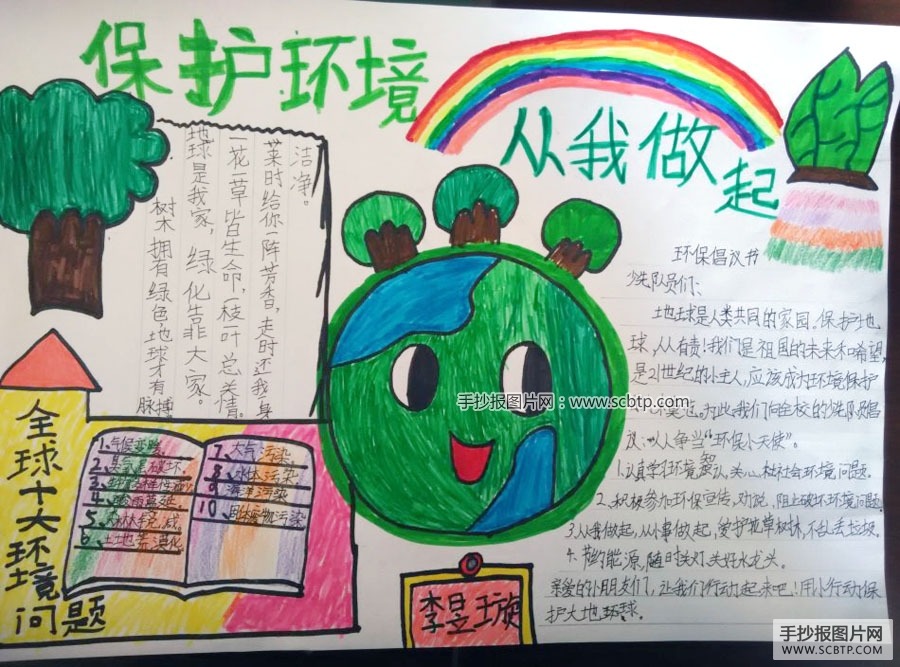 保护环境
从我做起
树木拥有绿色,地球才有脉搏
地球是我家,绿化靠大家。
一花一草皆生命,一枝一叶总关情。
菜时给你一阵芳香,走时还我一身
洁净。
全球十大环境
问题
1、气候变暖
2、臭氧层破坏
4、酸雨蔓延
5、森林锐减
6、土地荒漠化
7、大气污染
8、水体污染
9、海洋污染
10、固体废物污染
环保倡议书
少先队员们:
地球是人类共同的家园,保护地
球,人人有责!我们是祖国的未来和希望,
是21世纪的小主人,应该成为环境保护
为此,我们向全校的少队员倡
议:人人争当“环保小天使”。
1、认真学习环境知识,关心社会环境问题。
2、积极参加环保宣传,劝说,阻止破坏环境问题
3、从我做起,从小事做起,爱护花草树林,不乱丢垃圾。
4、节约能源,随时关灯,关好水龙头。
亲爱的小朋友们,让我们行动起来吧!用小行动保
护大地环球。
李昱璇
手抄报图片网:www.scbtp.com
手抄报图片网
WWW.SCBTP.COM